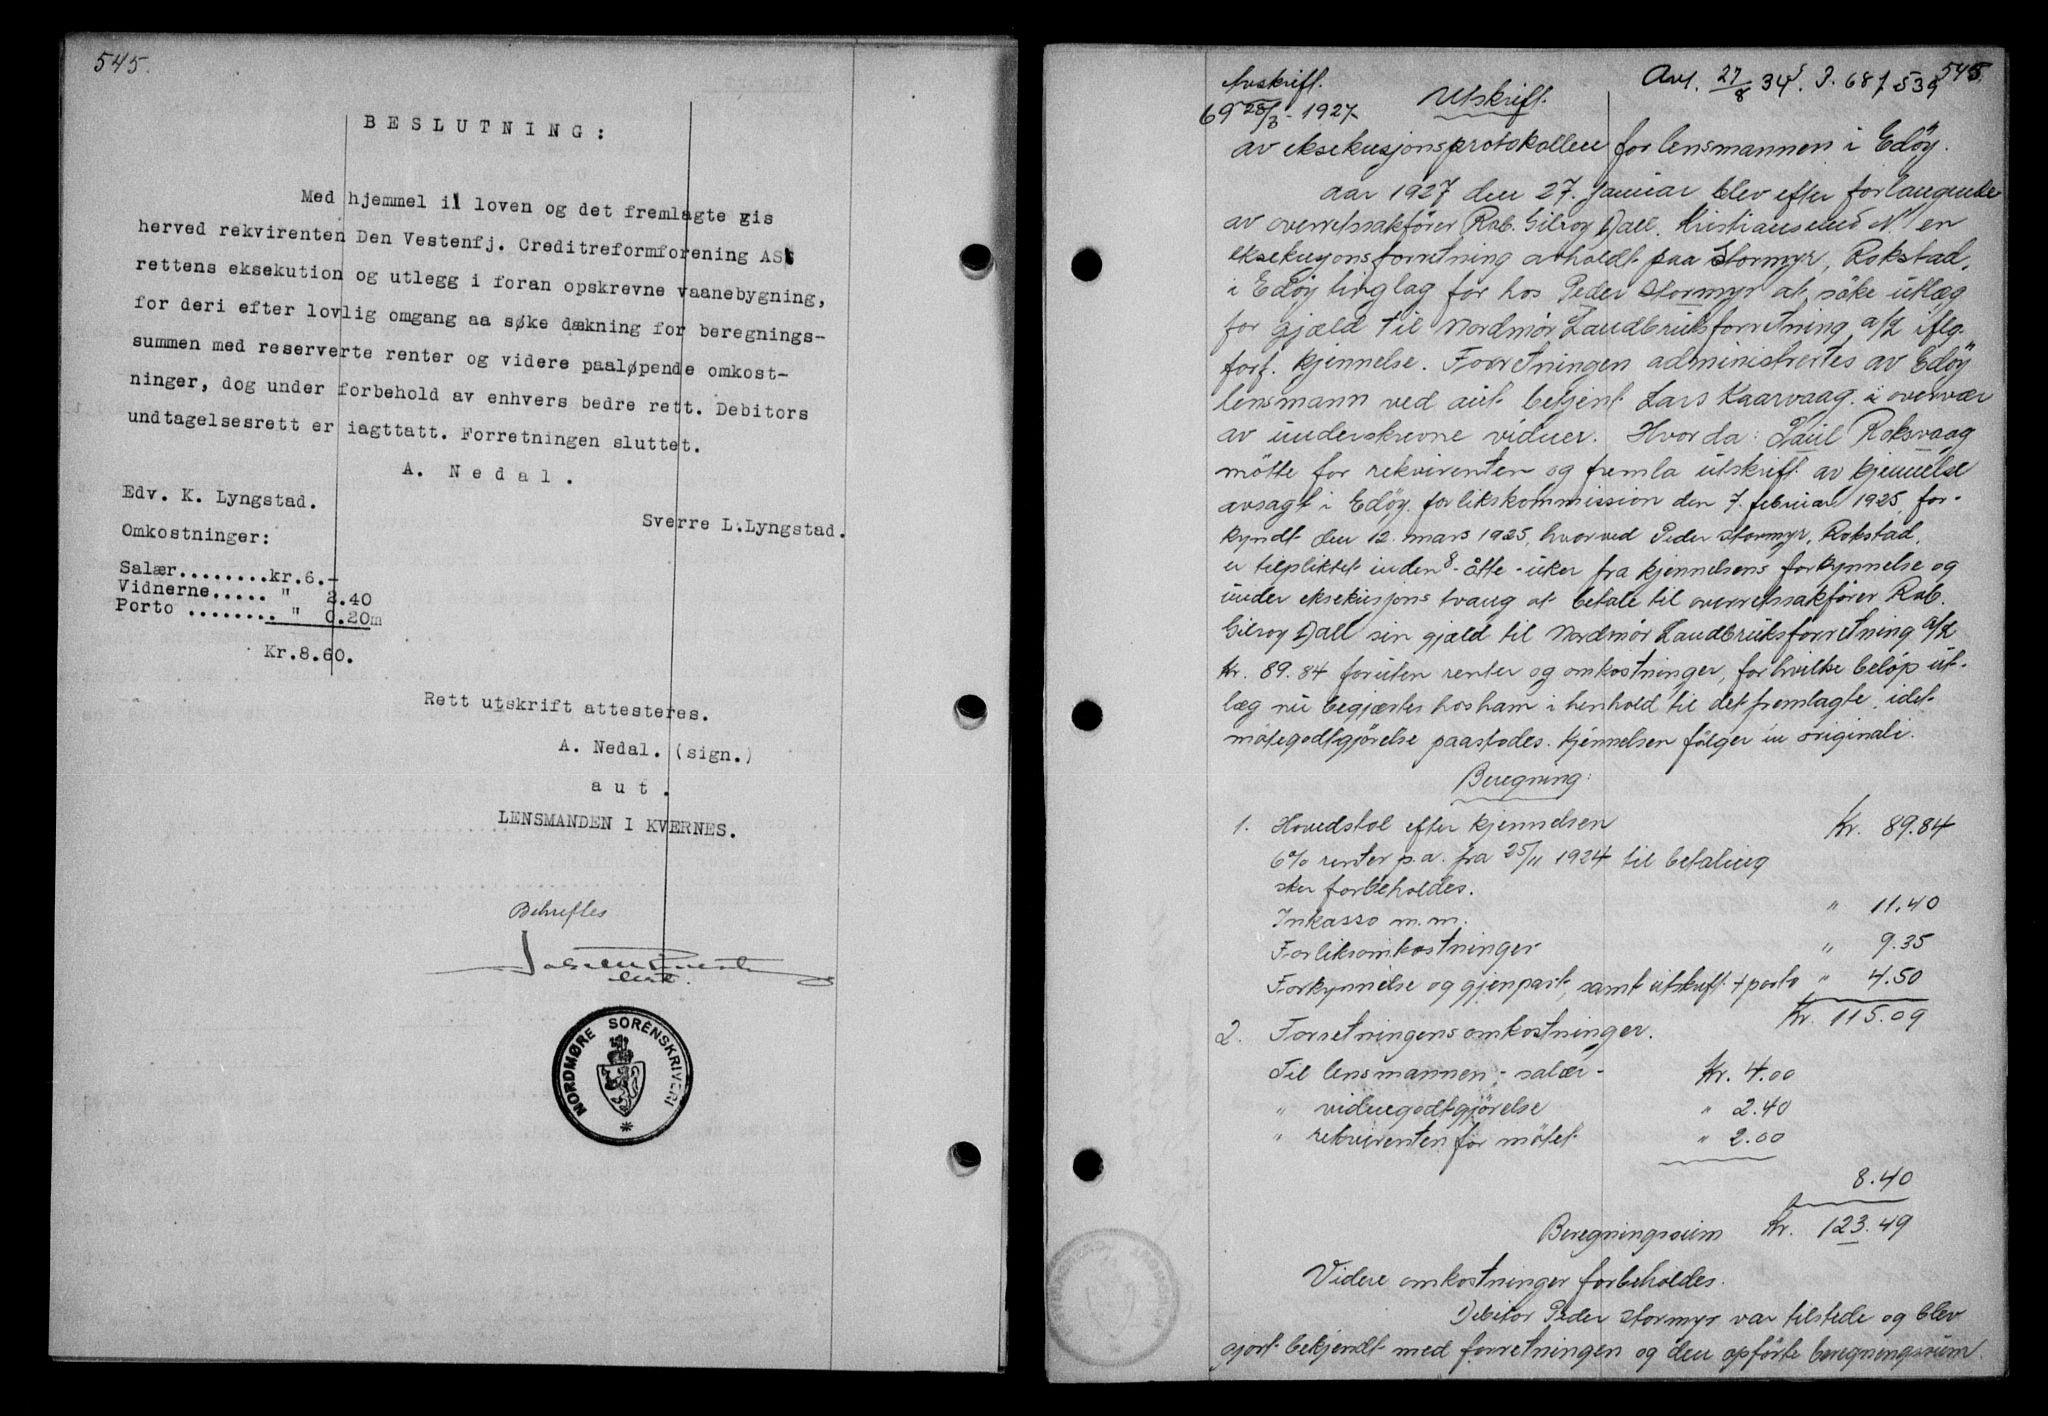 545.
BESLUTNING:
Med hjemmel i loven og det fremlagte gis
herved rekvirenten Den Vestenfj. Creditreformforening AS
rettens eksekution og utlegg i foran opskrevne vaanebygning,
for deri efter lovlig omgang aa søke dækning for beregnings-
summen med reserverte renter og videre paaløpende omkost-
ninger, dog under forbehold av enhvers bedre rett. Debitors
undtagelsesrett er iagttatt. Forretningen sluttet.
A. Nedal.
Edv. K. Lyngstad.
Sverre L. Lyngstad.
Omkostninger:
Salær........kr.6.-
Vidnerne..... " 2.40
Porto ........ " 0.20
Kr.8.60.
Rett utskrift attesteres.
A. Nedal. (sign.)
aut.
LENSMANDEN I KVERNES.
Bekreftes
NORDMØRE SORENSKRIVERI
545.
Avl. 27/8 34. J. 681 539
Avskrift.
69 28/3 - 1927
Utskrift
av eksekusjonsprotokollen for lensmannen i Edöy.
aar 1927 den 27. januar blev efter forlangende
av overretssakförer Rob. Gilroy Dall, Kristiansund N. en
eksekusjonsforretning avholdt paa Stormyr, Rokstad,
i Edöy tinglag for hos Peder Stormyr at söke utlæg
for gjæld til Nordmör Landbruksforretning a/l iflg.
forl. kjennelse. Forretningen administrertes av Edöy
lensmann ved aut. betjent Lars Kaarvaag i overvær
av underskrevne vidner. Hvorda: Paul Roksvaag
mötte for rekvirenten og fremla utskrift av kjennelse
avsagt i Edöy forlikskommission den 7. februar 1925, for-
kyndt den 12. mars 1925, hvorved Peder Stormyr, Rokstad,
er tilpliktet inden 8 - åtte - uker fra kjennelsens forkynnelse og
under eksekusjons tvang at betale til overretssakförer Rob.
Gilroy Dall sin gjæld til Nordmör Landbruksforretning a/l
kr. 89.84 foruten renter og omkostninger, for hvilke belöp ut-
læg nu begjærtes hos ham i henhold til det fremlagte, idet
mötegodtgjörelse paastodes. Kjennelsen fölger in originali.
Beregning:
1. Hovedstol efter kjennelsen Kr. 89.84
6% renter p.a. fra 25/11 1924 til betaling
sker forbeholdes.
Inkasso m.m. " 11.40
Forliksomkostninger " 9.35
Forkynnelse og gjenpart, samt utskrift + porto " 4.50
Kr. 115.09
2. Forretningens omkostninger.
Til lensmannen - salær - Kr. 4.00
" vidnegodtgjörelse " 2.40
" rekvirenten for mötet " 2.00
8.40
Beregningssum Kr. 123.49
Videre omkostninger forbeholdes.
Debitor Peder Stormyr var tilstede og blev
gjort bekjendt med forretningen og den opförte beregningssum.